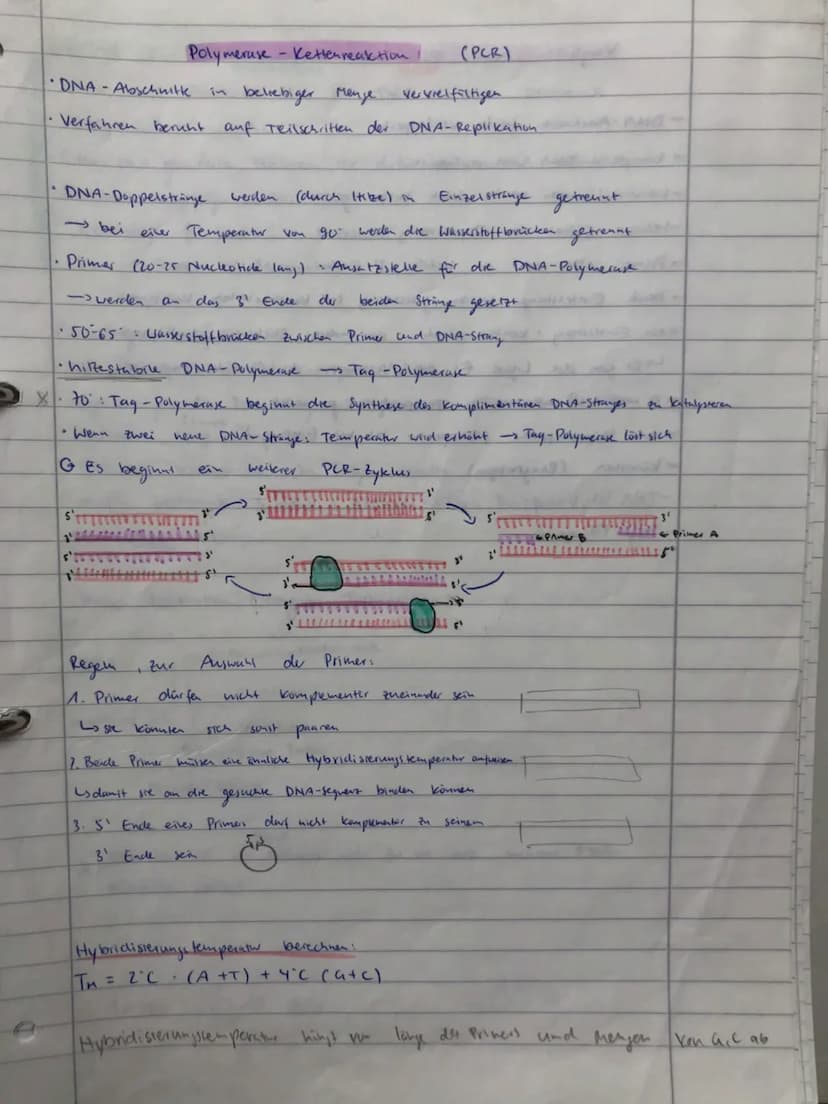 Polymerase - Kettenreaktion (PCR)
· DNA - Abschnitte in beliebiger Menge vervielfältigen
· Verfahren beruht auf Teilschritten der DNA-Replikation
· DNA-Doppelstränge werden (durch Hitze) in Einzelstränge getrennt
→ bei einer Temperatur von 90° werden die Wasserstoffbrücken getrennt
· Primer (20-25 Nucleotide lang) : Ansatzstelle für die DNA-Polymerase
→ werden an das 3' Ende der beiden Stränge gesetzt
· 50°-65° : Wasserstoffbrücken zwischen Primer und DNA-Strang
· hitzestabile DNA-Polymerase → Taq-Polymerase
x · 70° : Taq-Polymerase beginnt die Synthese des komplimentären DNA-Stranges zu katalysieren
· Wenn zwei neue DNA-Stränge: Temperatur wird erhöht → Taq-Polymerase löst sich
↪ Es beginnt ein weiterer PCR-Zyklus
5' 3'
3' 5'
5' 3'
3' 5'
5' 3'
3' 5'
5' 3'
← Primer A
← Primer B
3' 5'
5' 3'
3' 5'
5' 3'
3' 5'
Regeln zur Auswahl der Primer:
1. Primer dürfen nicht komplementär zueinander sein
↳ sie könnten sich sonst paaren
2. Beide Primer müssen eine ähnliche Hybridisierungstemperatur aufweisen
↳ damit sie an die gesuchte DNA-Sequenz binden können
3. 5' Ende eines Primers darf nicht komplementär zu seinem
3' Ende sein
5' 3'
Hybridisierungstemperatur berechnen:
TH = 2°C · (A+T) + 4°C (G+C)
Hybridisierungstemperatur hängt von länge des Primers und Mengen von G,C ab